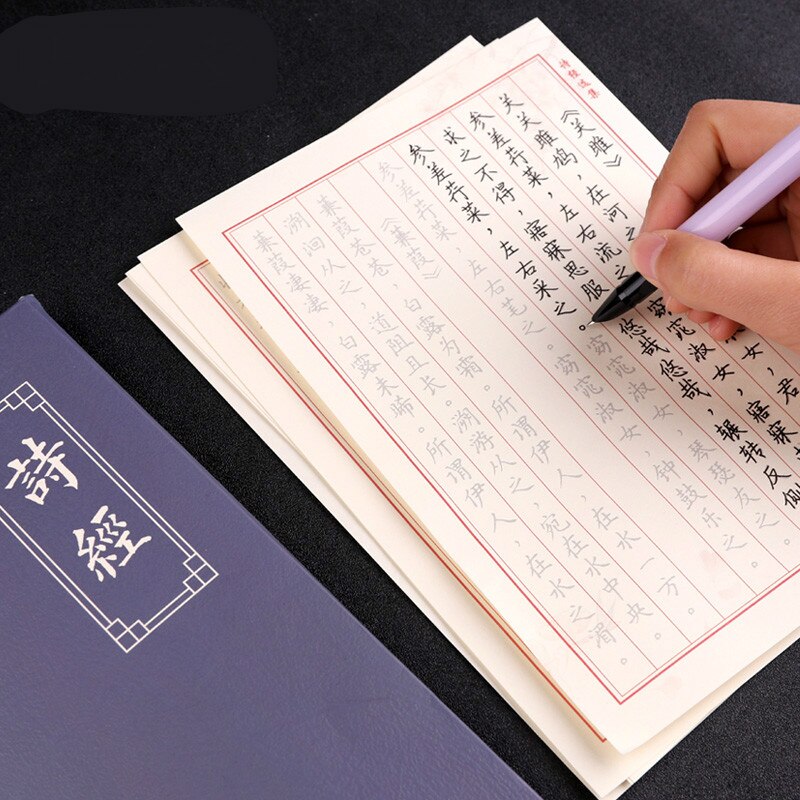 诗经选集
《关雎》
关关雎鸠，在河女，君
参差荇菜，左右流之窈窕淑女，寤寐
求之不得，寤寐思服。悠哉悠哉，辗转反侧
参差荇菜，左右采之。窈窕淑女，琴瑟友之。
参差荇菜，左右芼之。窈窕淑女，钟鼓乐之。
《蒹葭》
蒹葭苍苍，白露为霜。所谓伊人，在水一方。
溯洄从之，道阻且长。溯游从之，宛在水中央。
蒹葭凄凄，白露未晞。所谓伊人，在水之湄。
詩經